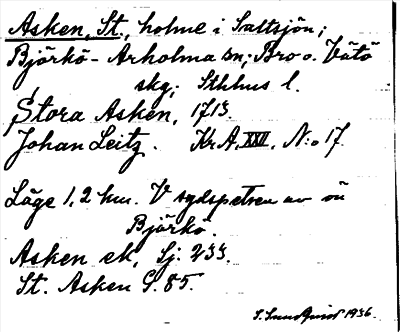 Asken, St., holme i Saltsjön;
Björkö-Arholma sn; Bro o. Vätö
skg; Sthlms l.
Stora Asken, 1713.
Johan Leitz. Kr.A, XXII, N:o 17.
Läge 1,2 km. V sydspetsen av ön
Björkö.
Asken ek, Sj. 233.
St. Asken G. 85.
S. Sundquist 1936.